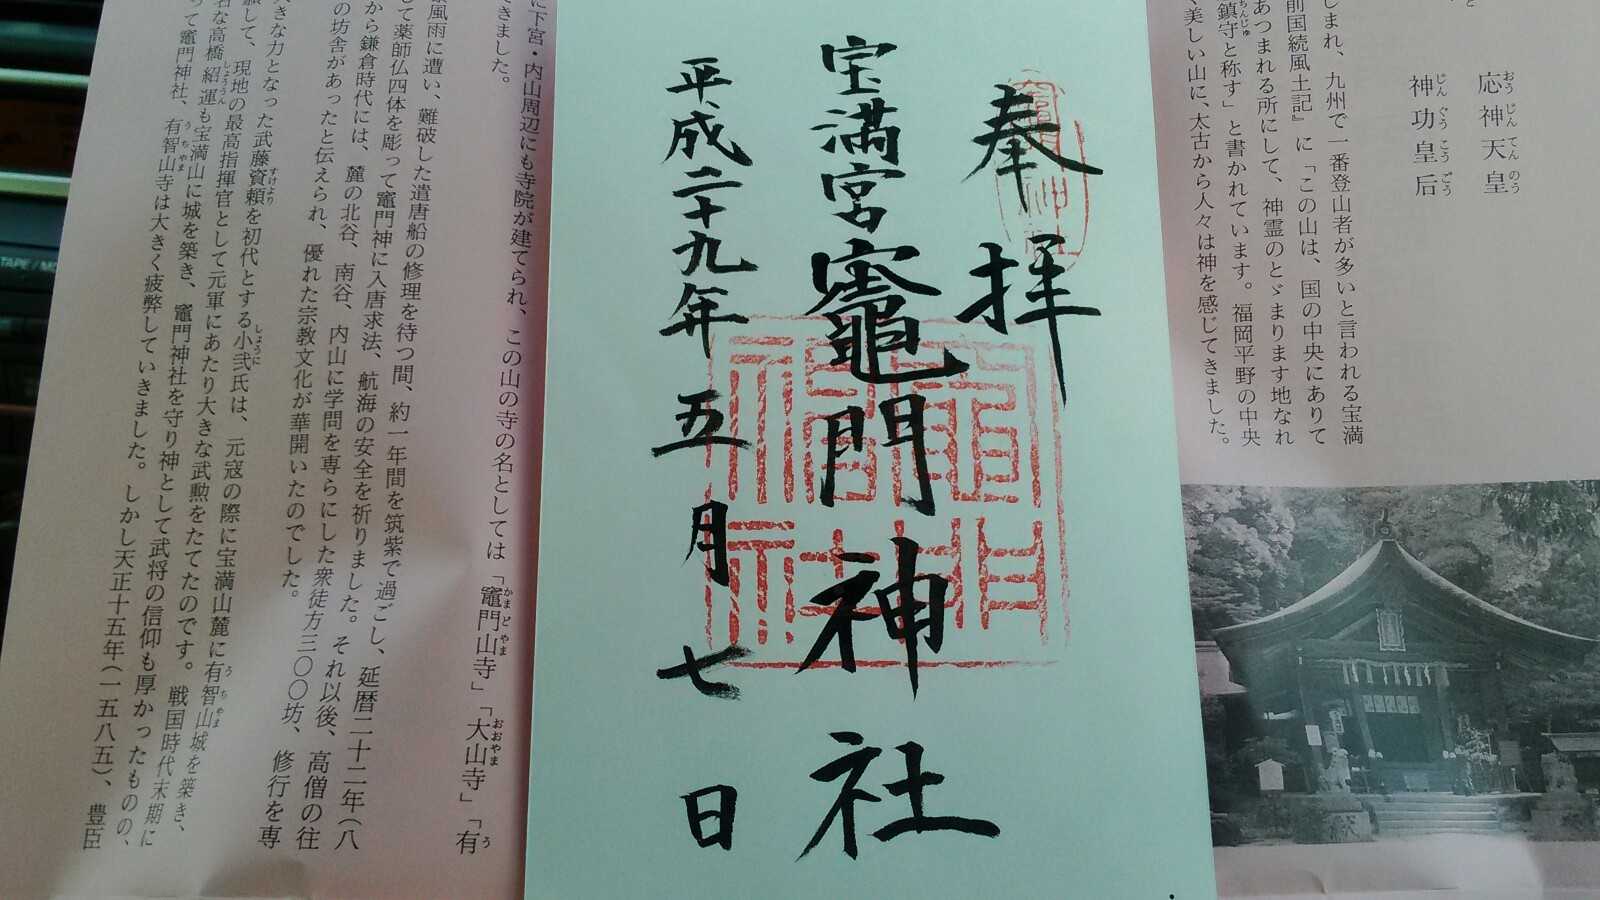 応神天皇
おうじんてんのう
神功皇后
じんぐうこうごう
しまれ、九州で一番登山者が多いと言われる宝満
前国続風土記』に「この山は、国の中央にありて
あつまれる所にして、神霊のとゞまります地なれ
鎮守と称す」と書かれています。福岡平野の中央
ちんじゅ
美しい山に、太古から人々は神を感じてきました。
奉拝
宝満宮竈門神社
平成二十九年五月七日
に下宮・内山周辺にも寺院が建てられ、この山の寺の名としては「竈門山寺」「大山寺」「有
かまどやま
おおやま
う
きました。
風雨に遭い、難破した遣唐船の修理を待つ間、約一年間を筑紫で過ごし、延暦二十二年(八
して薬師仏四体を彫って竈門神に入唐求法、航海の安全を祈りました。それ以後、高僧の往
から鎌倉時代には、麓の北谷、南谷、内山に学問を専らにした衆徒方三〇〇坊、修行を専
の坊舎があったと伝えられ、優れた宗教文化が華開いたのでした。
きな力となった武藤資頼を初代とする小弐氏は、元寇の際に宝満山麓に有智山城を築き、
すけより
しょうに
うちやま
願して、現地の最高指揮官として元軍にあたり大きな武勲をたてたのです。戦国時代末期に
名な高橋紹運も宝満山に城を築き、竈門神社を守り神として武将の信仰も厚かったものの、
しょううん
って竈門神社、有智山寺は大きく疲弊していきました。しかし天正十五年(一五八五)、豊臣
うちやま